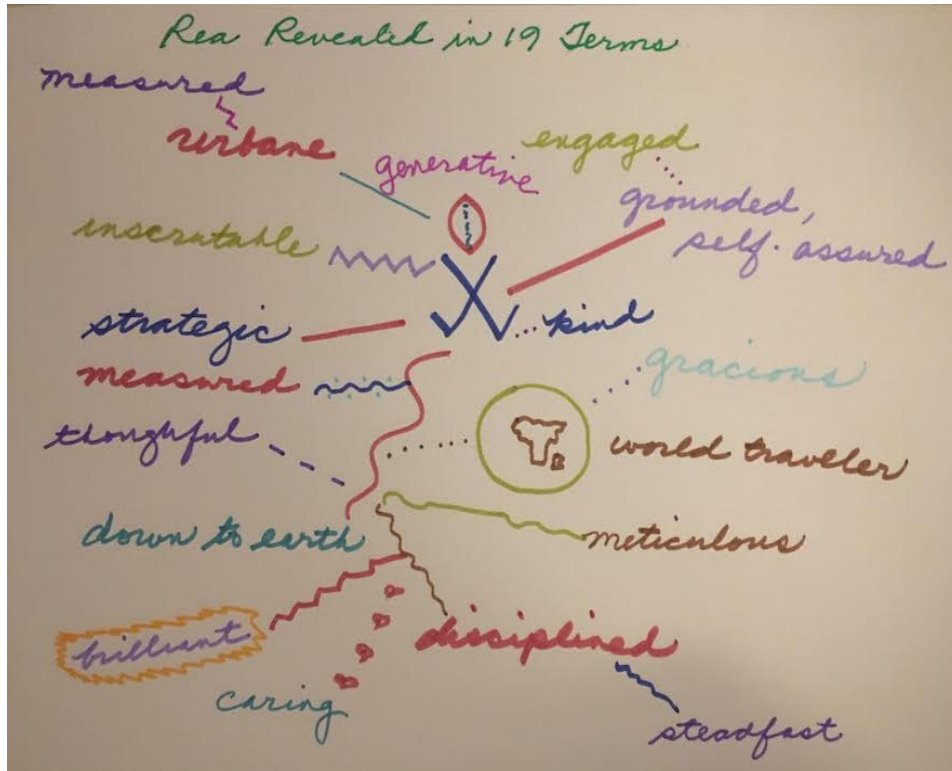 Rea Revealed in 19 Terms
measured
urbane
generative
engaged
grounded,
self-assured
inscrutable
strategic
kind
measured
gracious
thoughful
world traveler
down to earth
meticulous
brilliant
disciplined
caring
steadfast